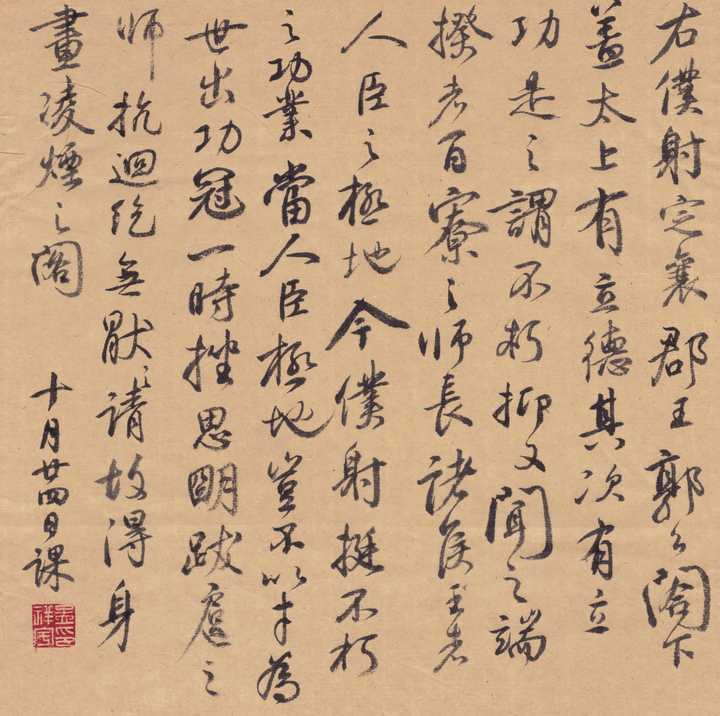 右僕射定襄郡王郭公閣下
蓋太上有立德其次有立
功是之謂不朽抑又聞之端
揆者百寮之师長諸侯王者
人臣之極地今僕射挺不朽
之功業當人臣極地豈不以才為
世出功冠一時挫思明跋扈之
师抗迴紇無厭之請故得身
畫凌煙之閣
十月廿四日課